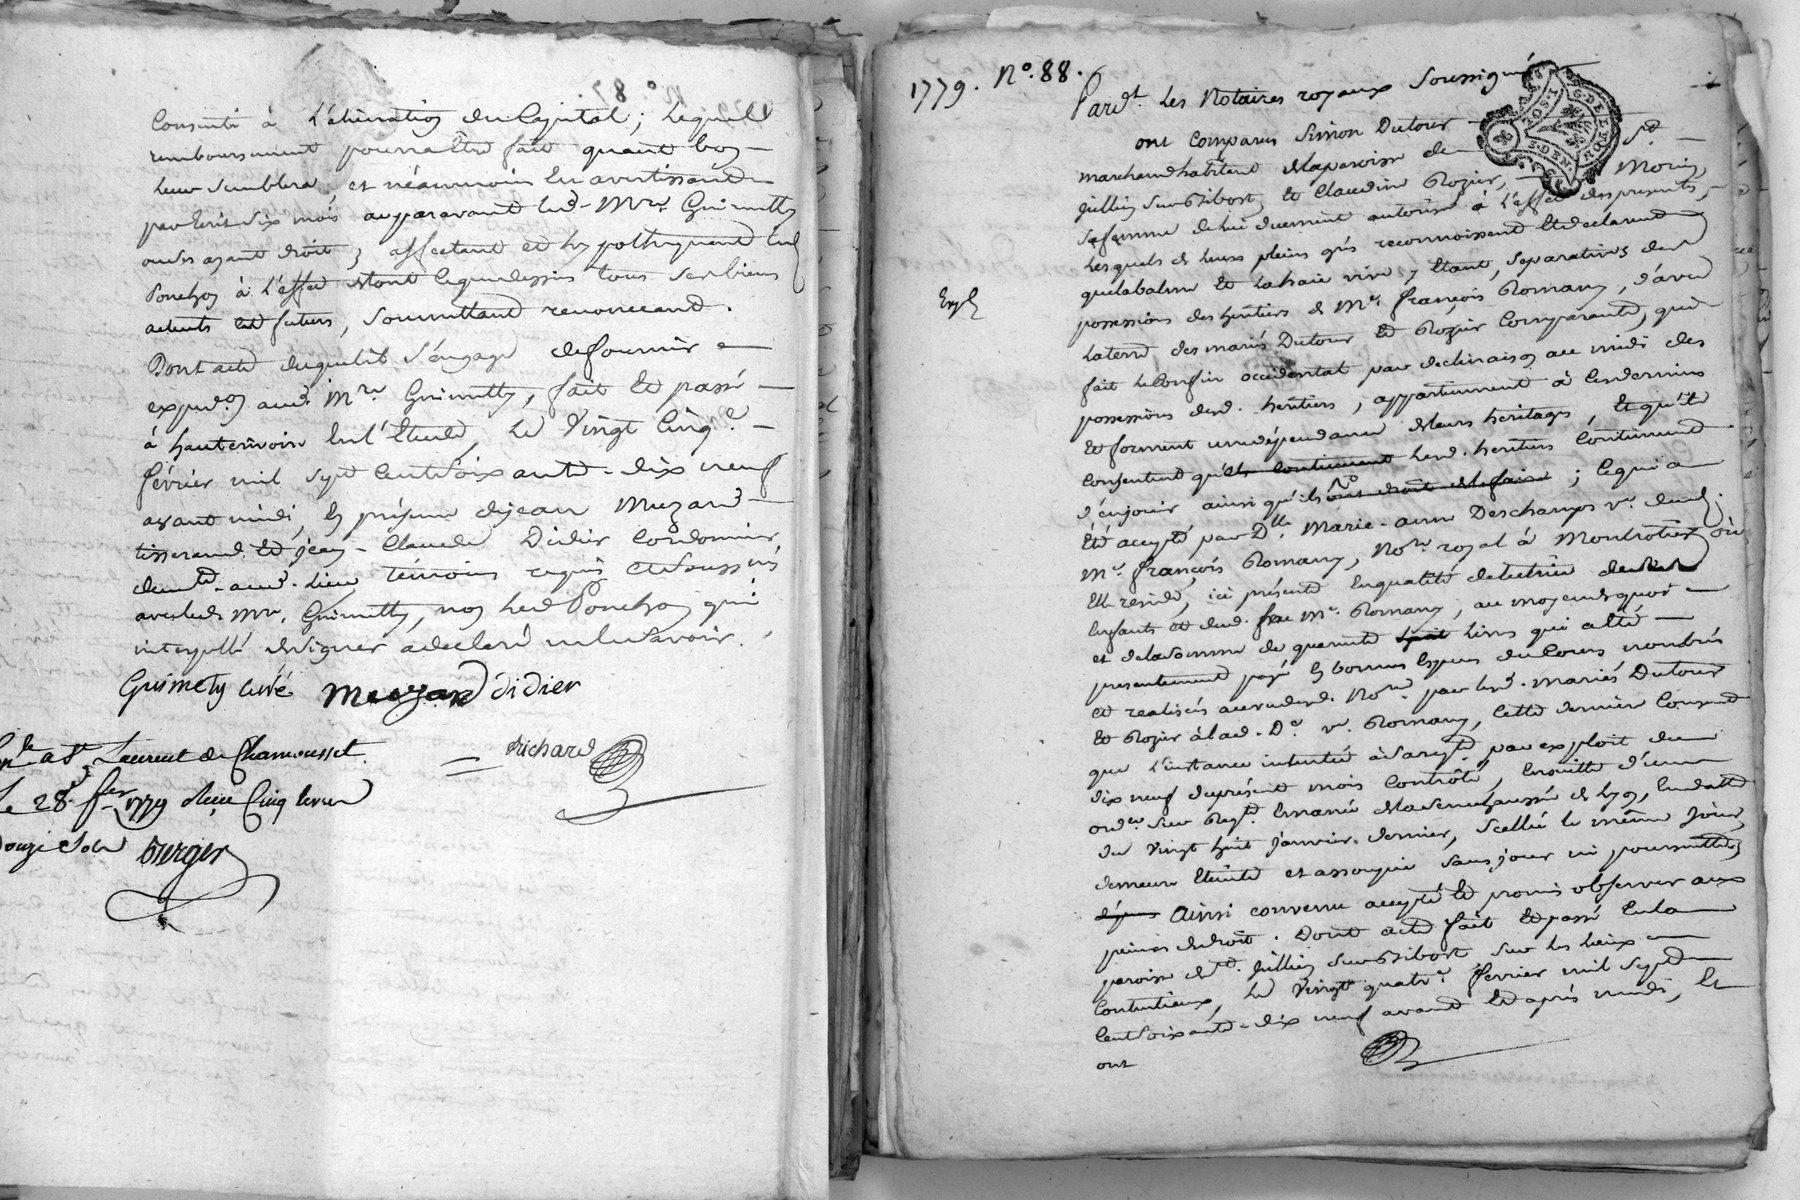 Consenti à l'aliénation du Capital ; lequel
remboursement pourra être fait quant bon
leur semblera, et néanmoins en avertissant
par écrit six mois auparavant led. Mre. Guimetty
ou ses ayant droit ; affectant et hypothequant led.
Ponchon à l'effet tous ses biens
actuels et futurs, soumettant renonceant.
Dont acte duquel il s'engage de fournir
expedon. aud. Mre. Guimetty, fait et passé
à hauterivoire en l'Etude, le Vingt Cinqe.
février mil sept Cent soixante-dix neuf
avant midi, en présence de jean Muzard
tisserand et jean-Claude Didier Cordonnier
aud. lieu témoins requis et soussignés
avec led. Mre. Guimetty, non led. Ponchon qui
interpellé de signer a declaré ne le savoir.
Guimety curé Meuzard didier
richard
à St. Laurent de Chamousset
Le 28 fer. 1779 Cinq livres
douze sols berger
1779. No. 88.
Pardt. les Notaires royaux soussignés
ont comparu Simon Dutour
marchand habitant de la paroisse de St.
Jullien sur Bibost, et Claudine Rozier,
sa femme de lui duement autorisée à l'effet des presentes,
lesquels de leurs pleins grés reconnoissent et declarent
que la balme et la haie vive, étant, separatives des
Expé
possessions des heritiers de Me. françois Romany, d'avec
la terre des mariés Dutour et Rozier Comparants, qui
fait le Confin occidental par declinaison au midi des
possessions desd. heritiers, appartiennent à ces derniers
et forment une dépendance de leurs heritages, et qu'ils
Consentent que lesd. heritiers Continuent
d'en jouir ainsi qu'ils ont droit de le faire ; ce qui a
été accepté par Dlle. Marie-anne Deschamps ve. dud.
Me. françois Romany, Nore. royal à Montrotier où
Elle reside, ici présente en qualité de tutrice de ses
Enfants et dud. feu Me. Romany, au moyen de quoi
et de la somme de quarante livres qui a été
presentement payé en bonnes Especes du Cours nombrées
et realisées au vu desd. Nores. par lesd. mariés Dutour
et Rozier à lad. De. ve. Romany, cette derniere Consent
que l'instance intentée à sa reqte. par exploit du
dix neuf du présent mois Contrôlé, Ensuite d'une
ordce. sur Reqte. Emanée de la senechaussée de lyon, en datte
du Vingt huit janvier dernier, scellée le même jour,
demeure éteinte et assoupie sans jour ni poursuittes
Ainsi convenu accepté et promis observer aux
peines de droit. Dont acte fait et passé en la
paroisse de St. Jullien sur Bibost sur les lieux
Contentieux, le Vingt quatre. février mil sept
Cent soixante-dix neuf avant et après midi, et
ont